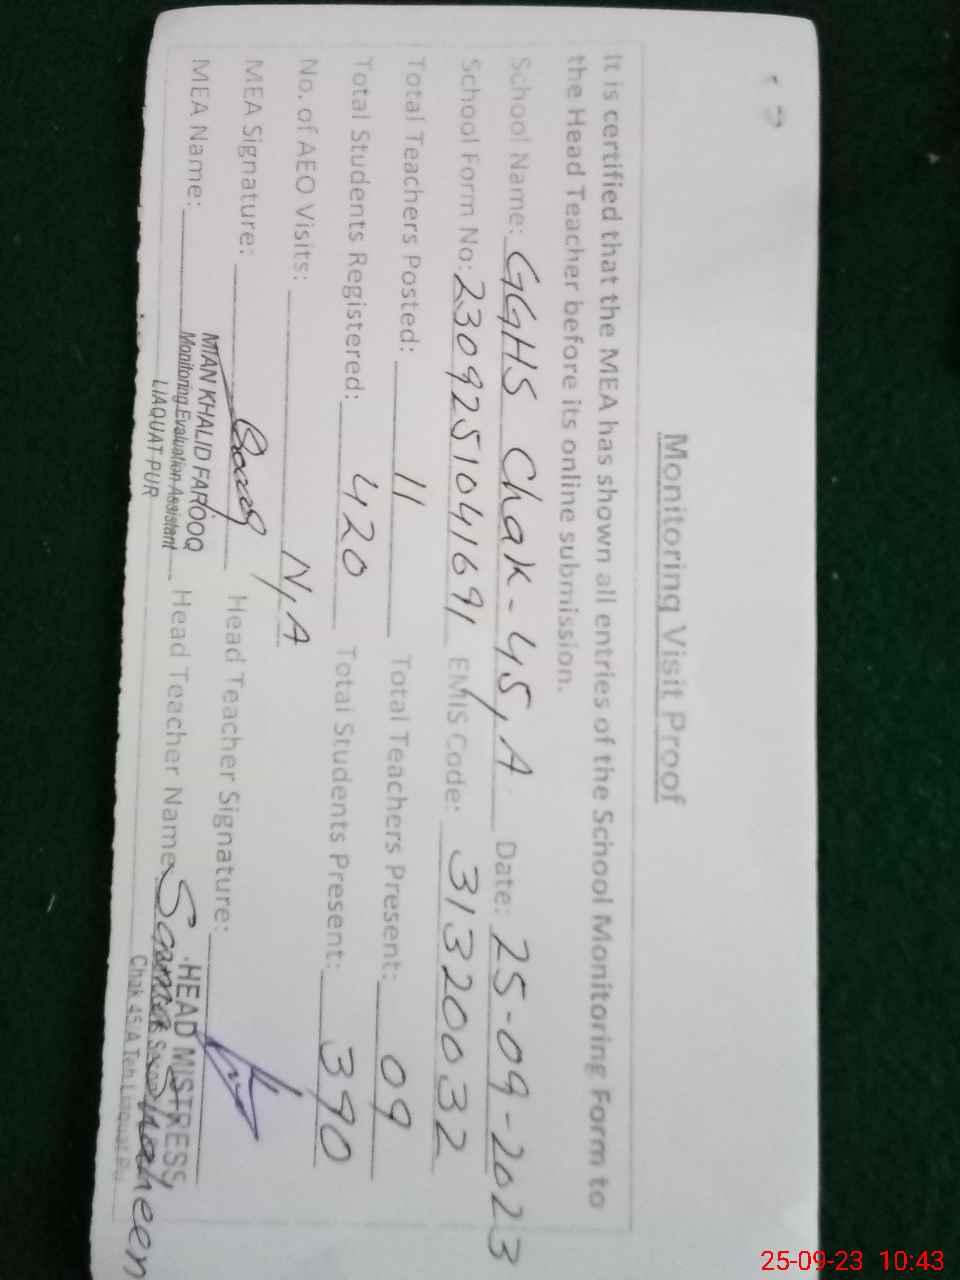 Monitoring Visit Proof
It is certified that the MEA has shown all entries of the School Monitoring Form to
the Head Teacher before its online submission.
School Name: GGHS Chak-45/A Date: 25-09-2023
School Form No: 2309251041691 EMIS Code: 31320032
Total Teachers Posted: 11 Total Teachers Present: 09
Total Students Registered: 420 Total Students Present: 390
No. of AEO Visits: N/A
MEA Signature: Head Teacher Signature:
MEA Name: MIAN KHALID FAROOQ Head Teacher Name: HEAD MISTRESS
Monitoring Evaluation Assistant
LIAQUAT PUR Chak 45/A Teh Liaquat Pur
25-09-23 10:43